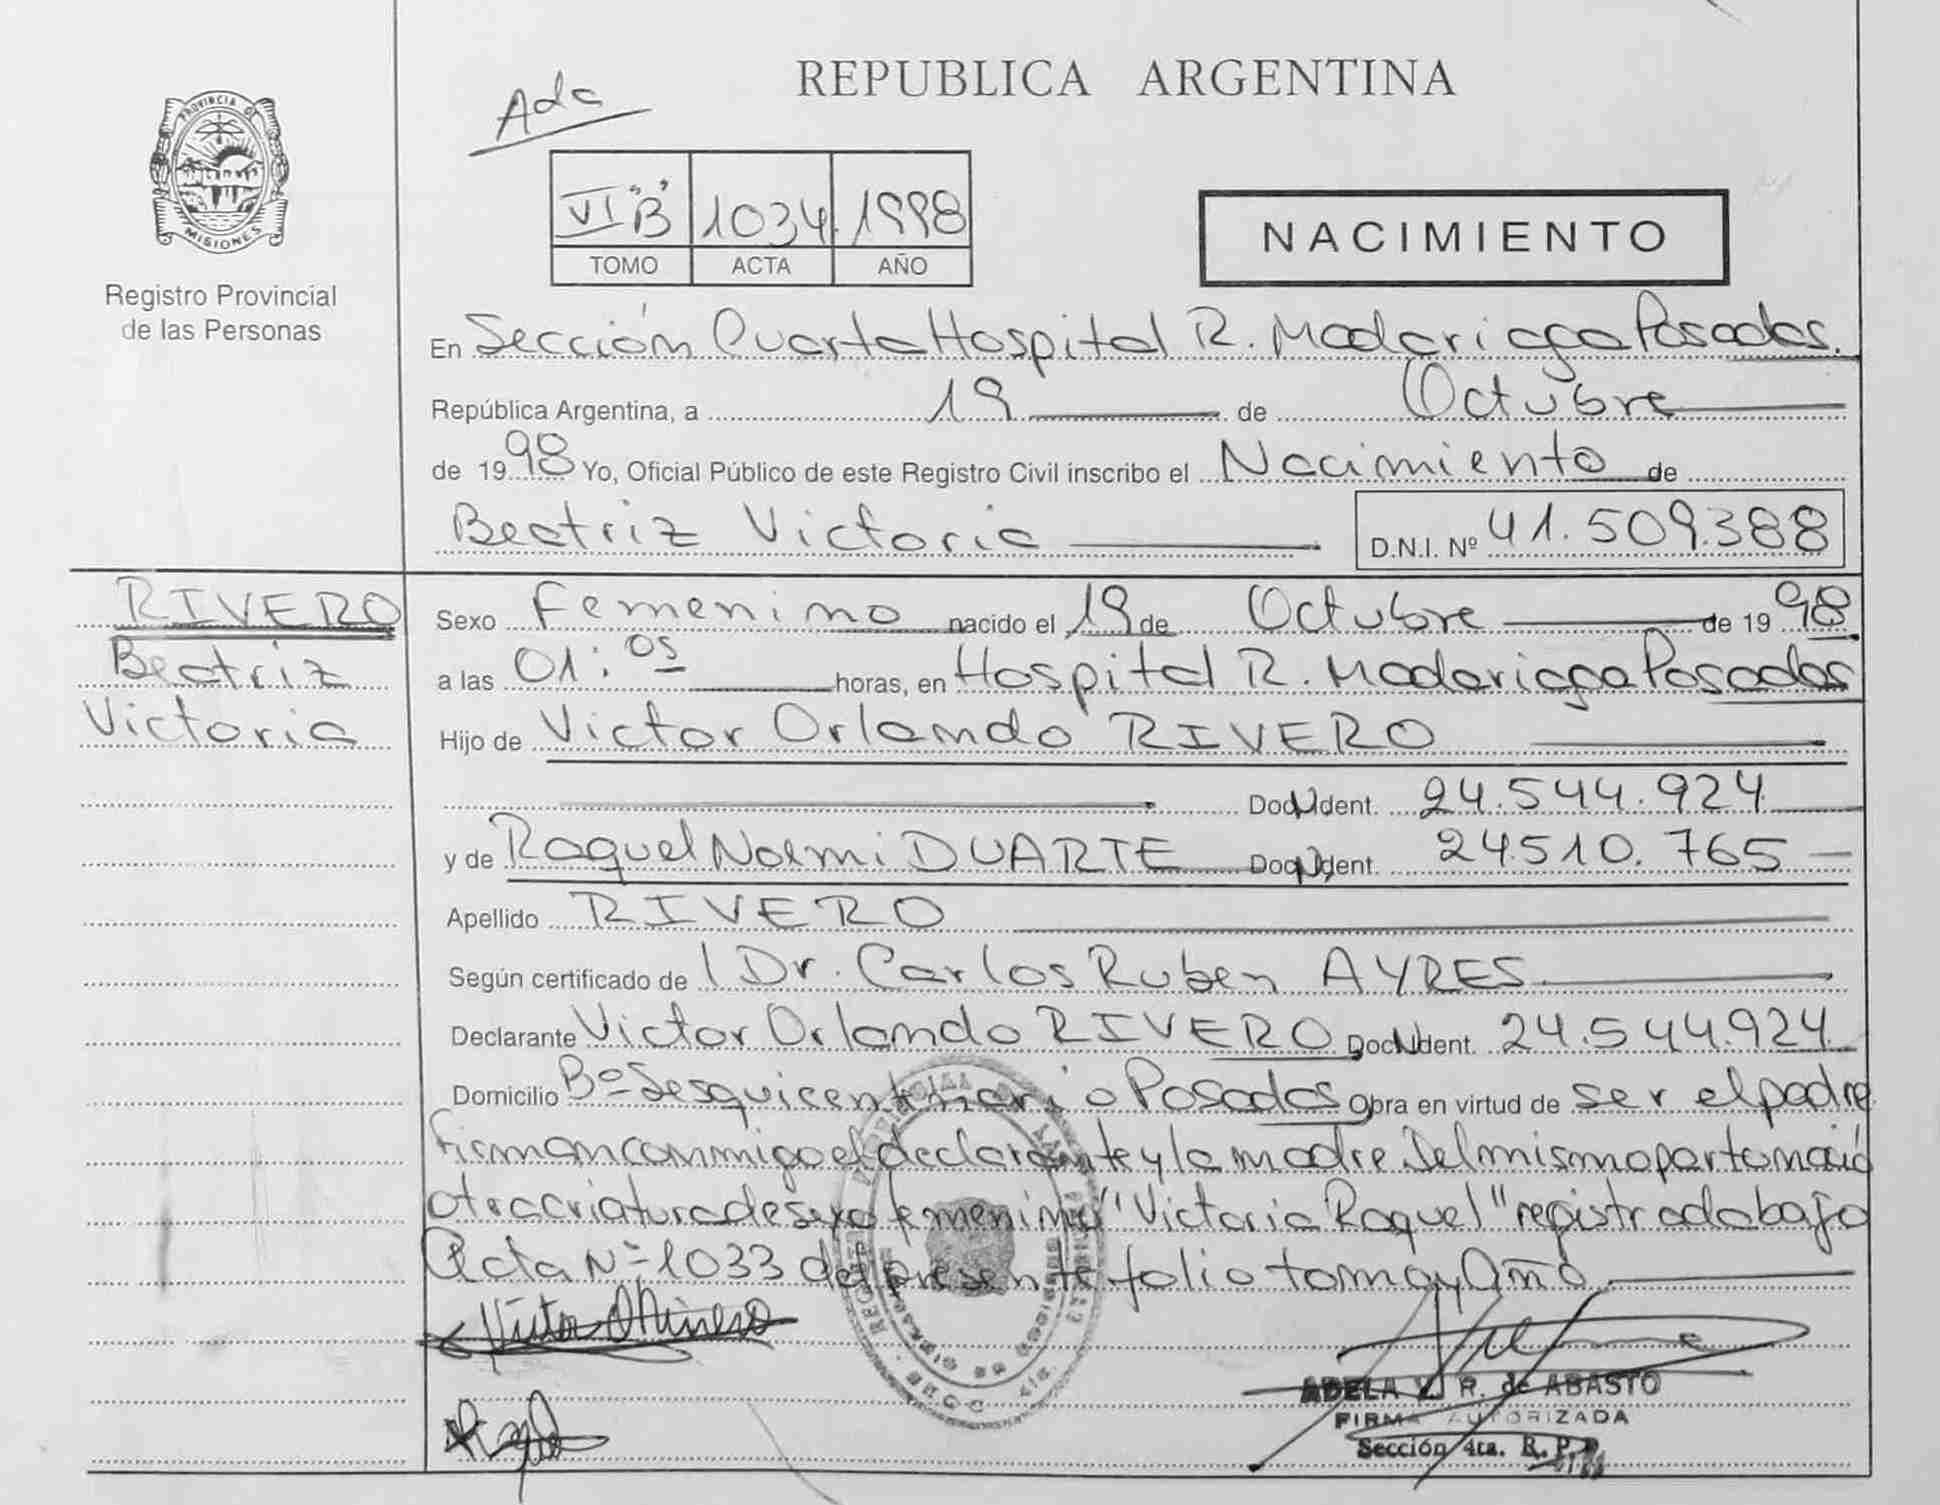 REPUBLICA ARGENTINA
Ada
PROVINCIA DE
MISIONES
Registro Provincial
de las Personas
VI "B" 1034 1998
TOMO ACTA AÑO
NACIMIENTO
En Sección Cuarta Hospital R. Madariaga Posadas.
República Argentina, a 19 de Octubre
de 1998 Yo, Oficial Público de este Registro Civil inscribo el Nacimiento de
Beatriz Victoria D.N.I. Nº 41.509.388
RIVERO
Beatriz
Victoria
Sexo Femenino nacido el 19 de Octubre de 1998
a las 01:05 horas, en Hospital R. Madariaga Posadas
Hijo de Victor Orlando RIVERO
Doc. Ident. 24.544.924
y de Raquel Noemi DUARTE Doc. Ident. 24.510.765
Apellido RIVERO
Según certificado de l Dr. Carlos Ruben AYRES
Declarante Victor Orlando RIVERO Doc. Ident. 24.544.924
Domicilio Bº Sesquicentenario Posadas Obra en virtud de ser el padre
Firman conmigo el declarante y la madre Del mismo parto nació
otra criatura de sexo femenino "Victoria Raquel" registrada bajo
Acta Nº 1033 del presente folio tomo y Año
ADELA R. de ABASTO
FIRMA AUTORIZADA
Sección 4ta. R. P. P.